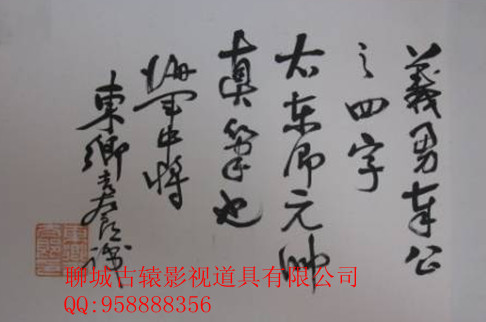 義勇奉公
之四字
右東郷元帥
真筆也
海軍中将
東郷吉太郎識
聊城古辕影视道具有限公司
QQ:958888356